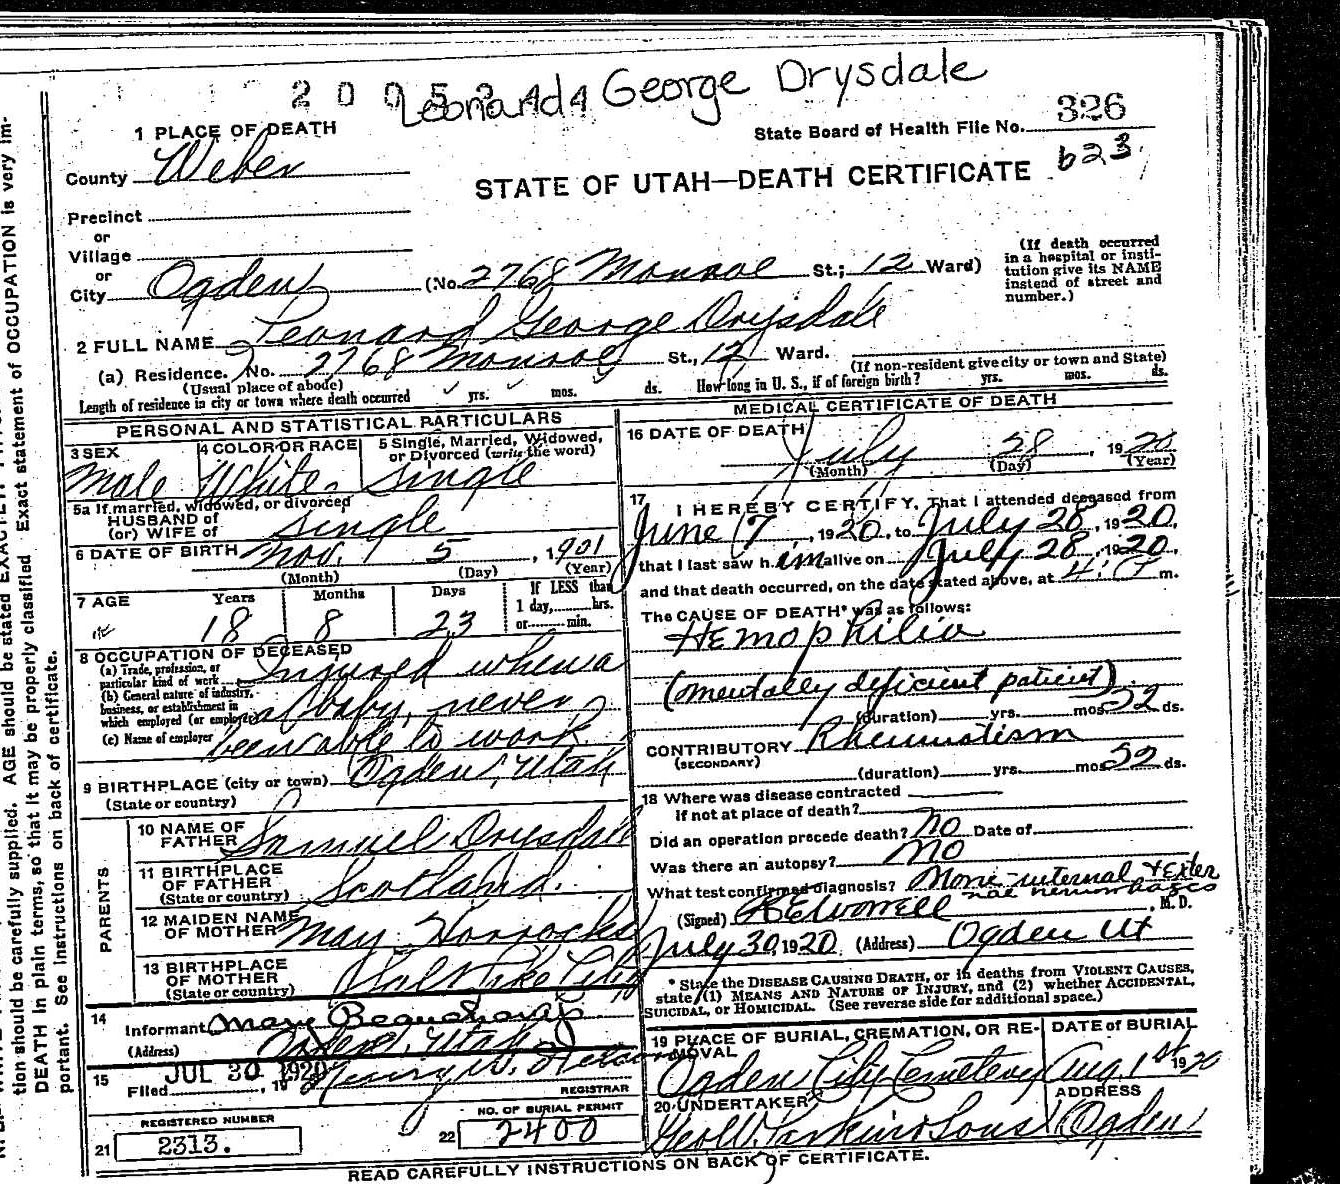 2005244
Leonard George Drysdale
1 PLACE OF DEATH
State Board of Health File No. 326
County Weber
STATE OF UTAH—DEATH CERTIFICATE
623
Precinct
or
Village
or
City Ogden (No. 2768 Monroe St.; 12 Ward)
(If death occurred in a hospital or institution give its NAME instead of street and number.)
2 FULL NAME Leonard George Drysdale
(a) Residence. No. 2768 Monroe St., 12 Ward.
(Usual place of abode) (If non-resident give city or town and State)
Length of residence in city or town where death occurred yrs. mos. ds. How long in U. S., if of foreign birth? yrs. mos. ds.
PERSONAL AND STATISTICAL PARTICULARS
3 SEX Male
4 COLOR OR RACE White
5 Single, Married, Widowed, or Divorced (write the word) Single
5a If married, widowed, or divorced
HUSBAND of
(or) WIFE of Single
6 DATE OF BIRTH Nov. 5, 1901
(Month) (Day) (Year)
7 AGE Years 18 Months 8 Days 23
If LESS than 1 day, hrs. or min.
8 OCCUPATION OF DECEASED
(a) Trade, profession, or particular kind of work
(b) General nature of industry, business, or establishment in which employed (or employer)
(c) Name of employer
Injured when a
baby, never
been able to work
9 BIRTHPLACE (city or town) Ogden, Utah
(State or country)
PARENTS
10 NAME OF FATHER Samuel Drysdale
11 BIRTHPLACE OF FATHER Scotland.
(State or country)
12 MAIDEN NAME OF MOTHER May Horrocks
13 BIRTHPLACE OF MOTHER Salt Lake City
(State or country)
14
Informant
(Address) Ogden, Utah
15 Filed JUL 30 1920, 19
REGISTRAR
REGISTERED NUMBER
21 2313.
NO. OF BURIAL PERMIT
22 2400
MEDICAL CERTIFICATE OF DEATH
16 DATE OF DEATH July 28, 1920
(Month) (Day) (Year)
17 I HEREBY CERTIFY, That I attended deceased from
June 17, 1920, to July 28, 1920,
that I last saw him alive on July 28, 1920,
and that death occurred, on the date stated above, at m.
The CAUSE OF DEATH* was as follows:
Hemophilia
(mentally deficient patient)
(duration) yrs. mos. 22 ds.
CONTRIBUTORY Rheumatism
(SECONDARY)
(duration) yrs. mos. 22 ds.
18 Where was disease contracted
if not at place of death?
Did an operation precede death? no Date of
Was there an autopsy? no
What test confirmed diagnosis? None internal & external hemorrhages
(Signed) M.D.
July 30, 1920 (Address) Ogden Ut
* State the DISEASE CAUSING DEATH, or in deaths from VIOLENT CAUSES, state (1) MEANS AND NATURE OF INJURY, and (2) whether ACCIDENTAL, SUICIDAL, or HOMICIDAL. (See reverse side for additional space.)
19 PLACE OF BURIAL, CREMATION, OR REMOVAL Ogden City Cemetery
DATE of BURIAL Aug. 1st 1920
20 UNDERTAKER
ADDRESS Ogden
READ CAREFULLY INSTRUCTIONS ON BACK OF CERTIFICATE.
tion should be carefully supplied. AGE should be stated EXACTLY.
DEATH in plain terms, so that it may be properly classified. Exact statement of OCCUPATION is very im-
portant. See instructions on back of certificate.